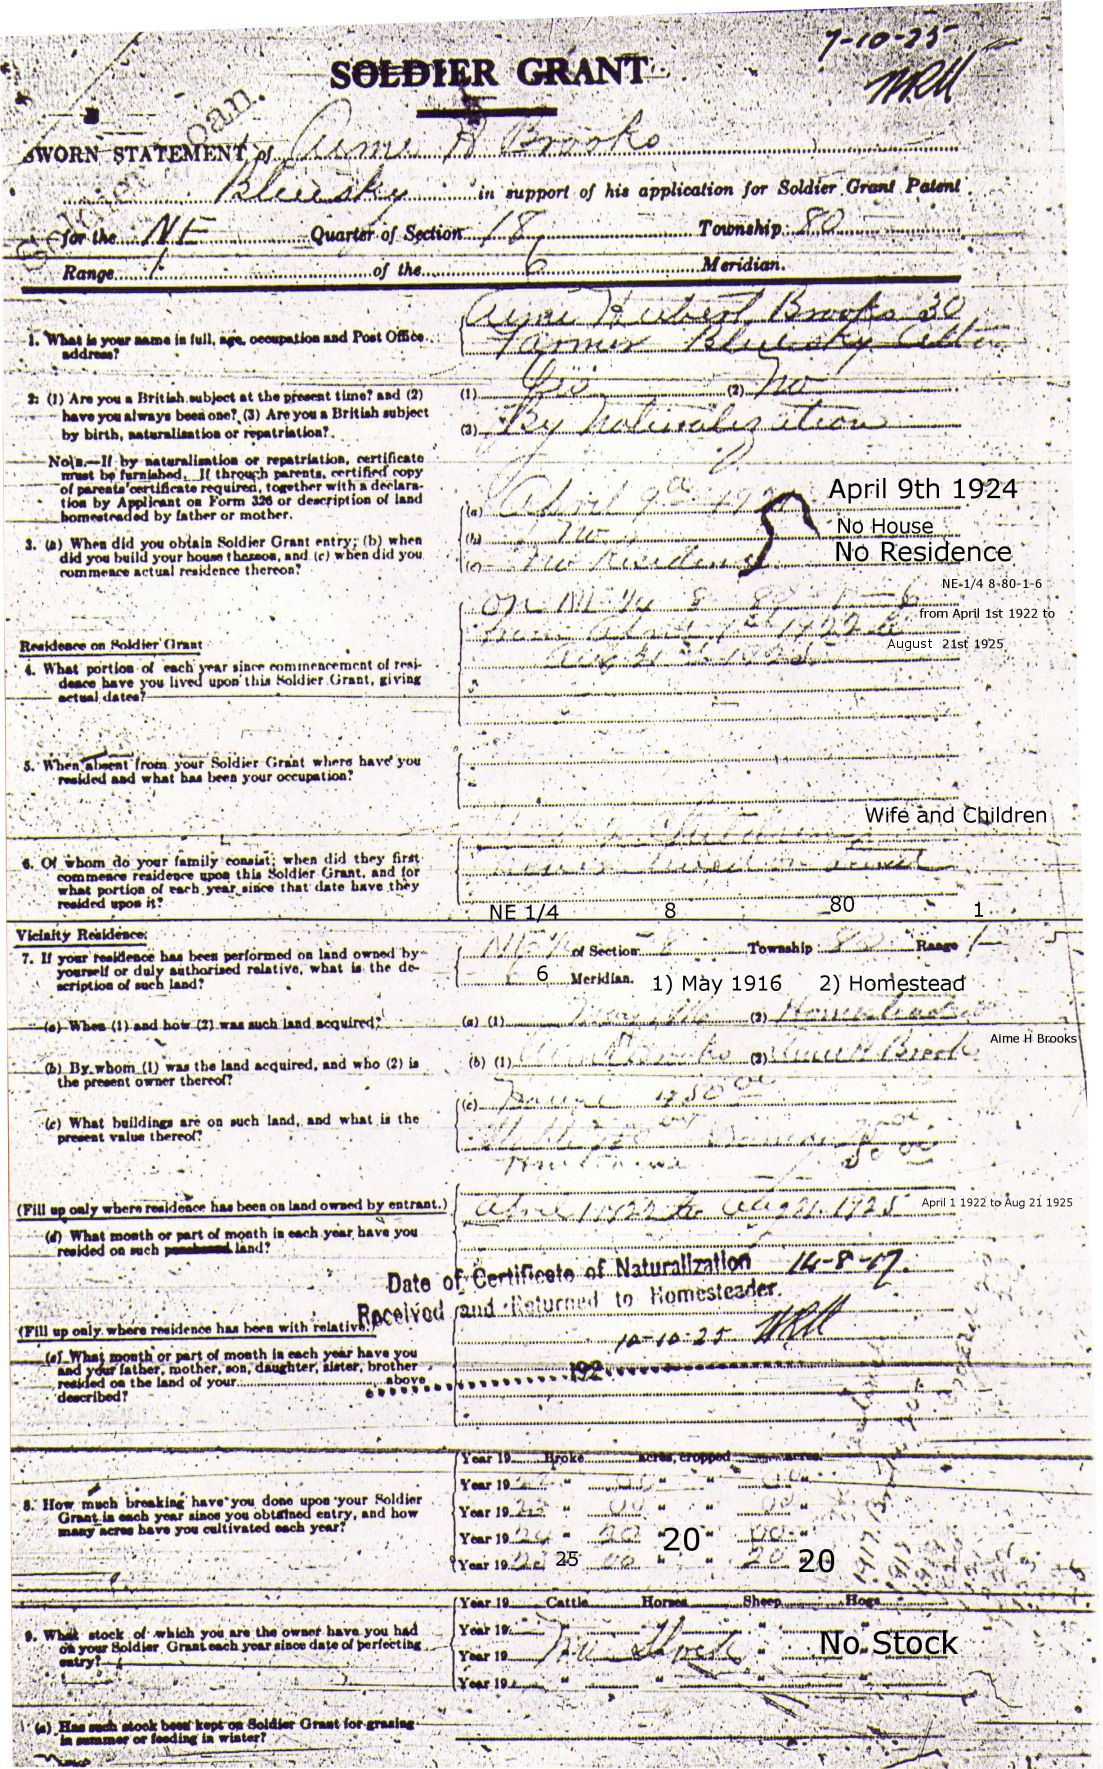 7-10-25
WRM
SOLDIER GRANT
Soldier Loan.
SWORN STATEMENT of Aime H Brooks
Bluesky in support of his application for Soldier Grant Patent
for the NE Quarter of Section 18 Township 80
Range 1 of the 6 Meridian.
1. What is your name in full, age, occupation and Post Office address?
Aime Hubert Brooks 30
Farmer Bluesky Alta
2: (1) Are you a British subject at the present time? and (2) have you always been one? (3) Are you a British subject by birth, naturalisation or repatriation?
(1) Yes (2) No
(3) By Naturalization
Note.—If by naturalisation or repatriation, certificate
must be furnished. If through parents, certified copy
of parents' certificate required, together with a declara-
tion by Applicant on Form 326 or description of land
homesteaded by father or mother.
3. (a) When did you obtain Soldier Grant entry; (b) when
did you build your house thereon, and (c) when did you
commence actual residence thereon?
(a) April 9th 192 April 9th 1924
(b) No No House
(c) No Residence No Residence
NE-1/4 8-80-1-6
On NE 1/4 8 80 - 1 - 6
from April 1st 1922 to
from April 1st 1922 to
August 21st 1925
Aug 21st 1925
Residence on Soldier Grant
4. What portion of each year since commencement of resi-
dence have you lived upon this Soldier Grant, giving
actual dates?
5. When absent from your Soldier Grant where have you
resided and what has been your occupation?
Wife and Children
6. Of whom do your family consist; when did they first
commence residence upon this Soldier Grant, and for
what portion of each year since that date have they
resided upon it?
NE 1/4 8 80 1
Vicinity Residence:
7. If your residence has been performed on land owned by
yourself or duly authorized relative, what is the de-
scription of such land?
NE 1/4 of Section 8 Township 80 Range 1
6 Meridian. 1) May 1916 2) Homestead
(a) When (1) and how (2) was such land acquired?
(a) (1) May 1916 (2) Homestead
Aime H Brooks
(b) By whom (1) was the land acquired, and who (2) is
the present owner thereof?
(b) (1) Aime H Brooks (2) Aime H Brooks
(c) What buildings are on such land, and what is the
present value thereof?
(c) House
(Fill up only where residence has been on land owned by entrant.)
(d) What month or part of month in each year have you
resided on such purchased land?
April 1 1922 to Aug 21 1925 April 1 1922 to Aug 21 1925
Date of Certificate of Naturalization 14-8-17.
Received and Returned to Homesteader.
10-10-25 WRM
192
(Fill up only where residence has been with relative.)
(e) What month or part of month in each year have you
and your father, mother, son, daughter, sister, brother
resided on the land of your above
described?
Year 19 Broke acres, cropped acres.
8. How much breaking have you done upon your Soldier
Grant in each year since you obtained entry, and how
many acres have you cultivated each year?
Year 19 " 00 " " 00 "
Year 1923 " 00 " " 00 "
Year 1924 " 20 " 20 " 00 "
Year 1925 25 00 " " 20 " 20
1917
1918
Year 19 Cattle Horses Sheep Hogs
9. What stock of which you are the owner have you had
on your Soldier Grant each year since date of perfecting
entry?
Year 19
Year 19 No Stock No Stock
Year 19
(a) Has such stock been kept on Soldier Grant for grazing
in summer or feeding in winter?